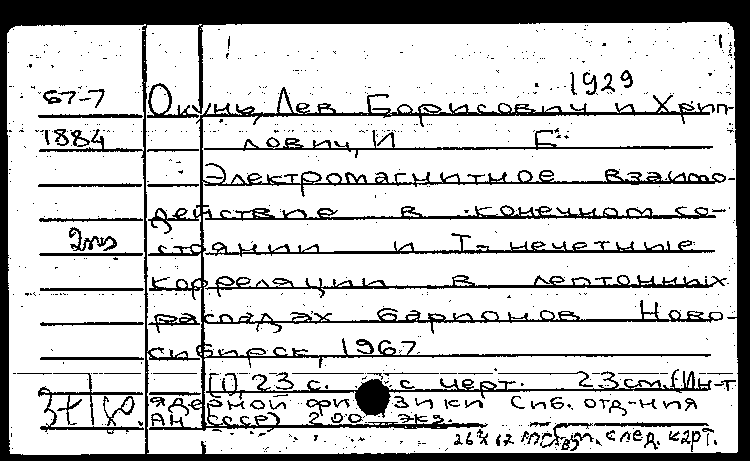 1929
67-7 Окунь, Лев Борисович и Хрип-
1884 лович, И Б
Электромагнитное взаимо-
действие в конечном со-
2 стоянии и Т-нечетные
корреляции в лептонных
распадах барионов Ново-
сибирск, 1967
[1], 23 с. с черт. 23 см. (Ин-т
ядерной физики Сиб. отд-ния
АН СССР) 200 экз.
см. след. карт.